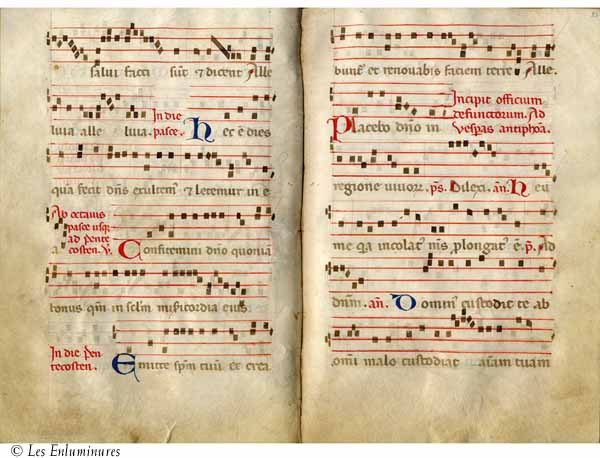 salui facti sūt & dicent Alle
luia alle luia. In die
pasce. Hec ē dies
quā fecit dn̄s exultem' & letemur in e
Ab octauis
pasce usq;
ad pente
costen. V.
a Confitemini dn̄o quoniā
bonus qm̄ in sclm̄ misericordia eius.
In die Pen
tecosten. Emitte spm̄ tuū et crea
bunt' et renouabis faciem terre Alle.
Incipit officium
defunctorum. Ad
vesp̄as antiphōa.
Placebo dn̄o in
regione viuor. ps. Dilexi. an̄. Heu
me qa incolat' m̄s prolongat' ē. p̄. Ad
dn̄m. an̄. Domin' custodit te ab
omi malo custodiat aīam tuam
© Les Enluminures